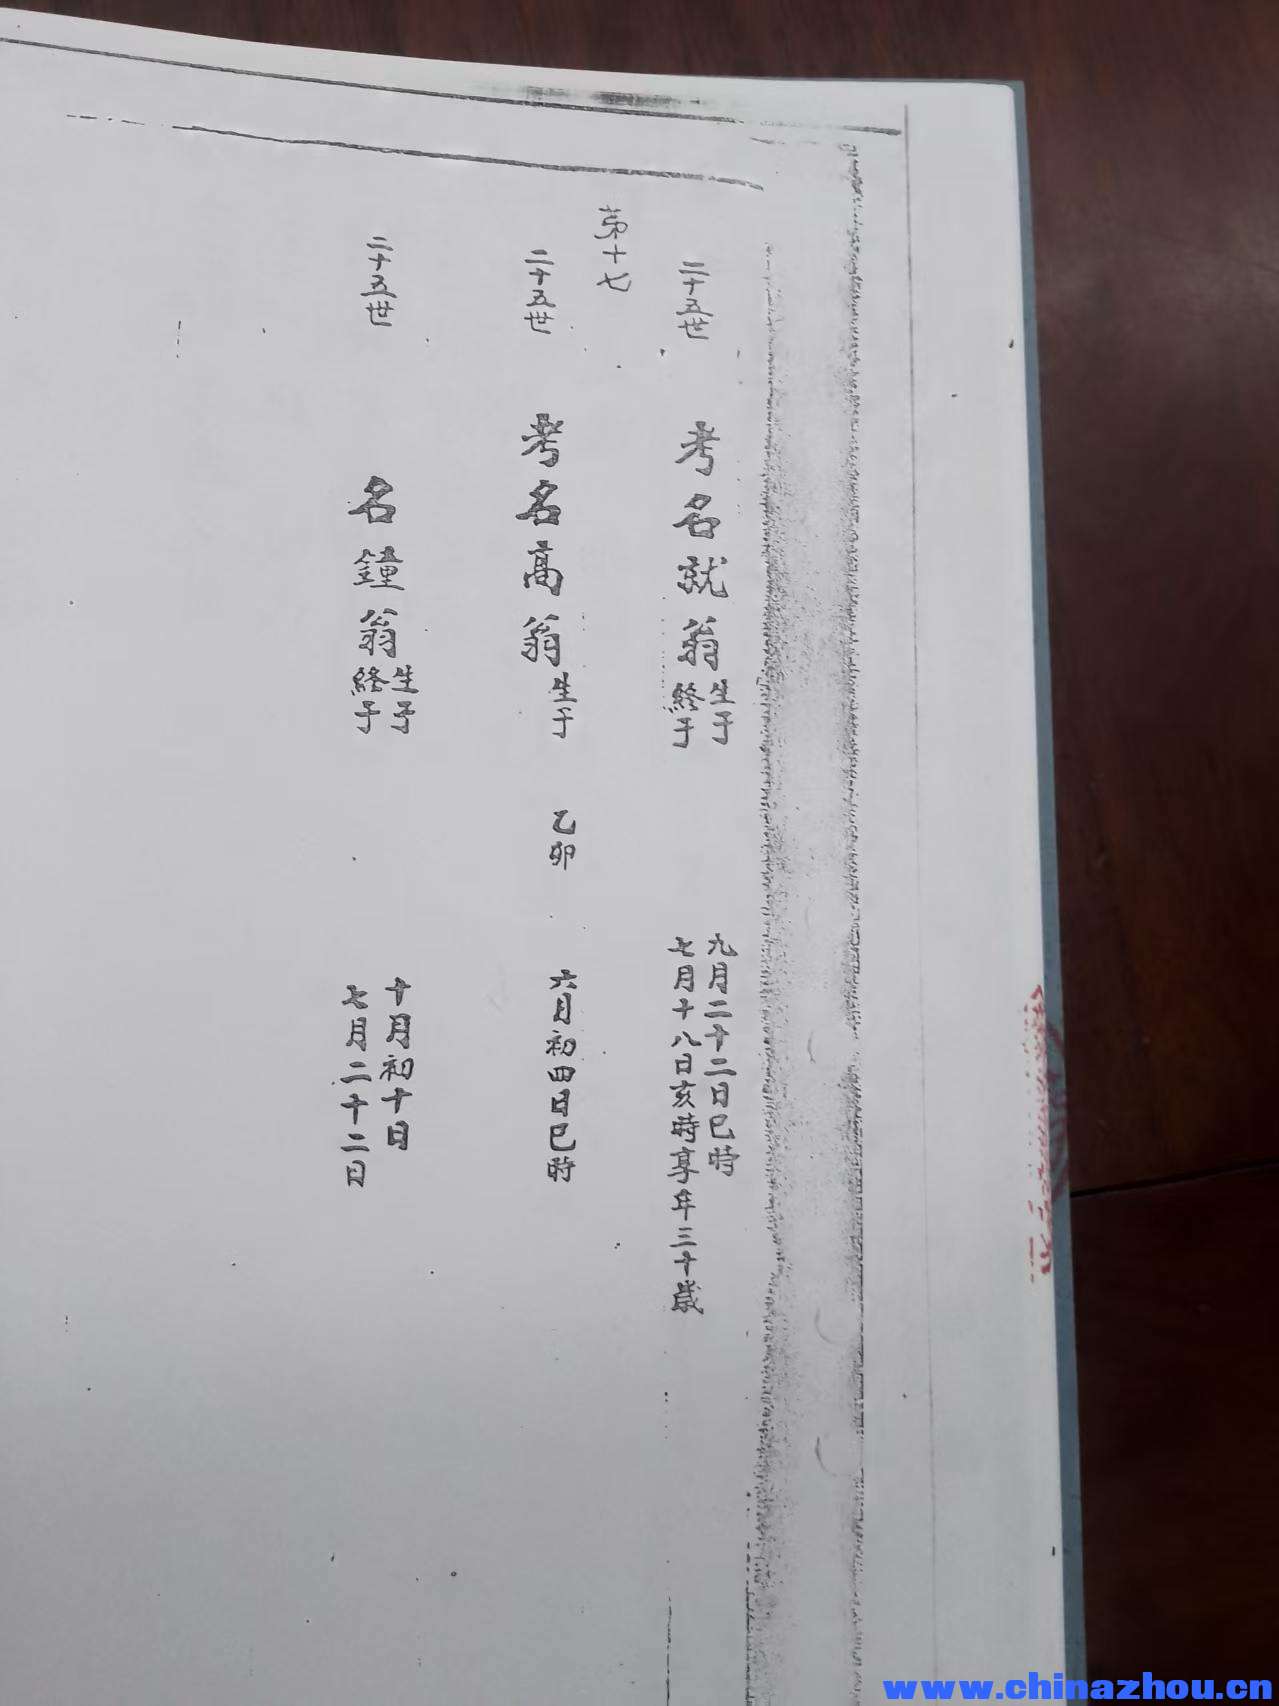 二十五世 考名就翁 生于 九月二十二日巳時
終于 七月十八日亥時享年三十歲
第十七
二十五世 考名高翁 生于 乙卯 六月初四日巳時
二十五世 名鐘翁 生于 十月初十日
終于 七月二十二日
www.chinazhou.cn